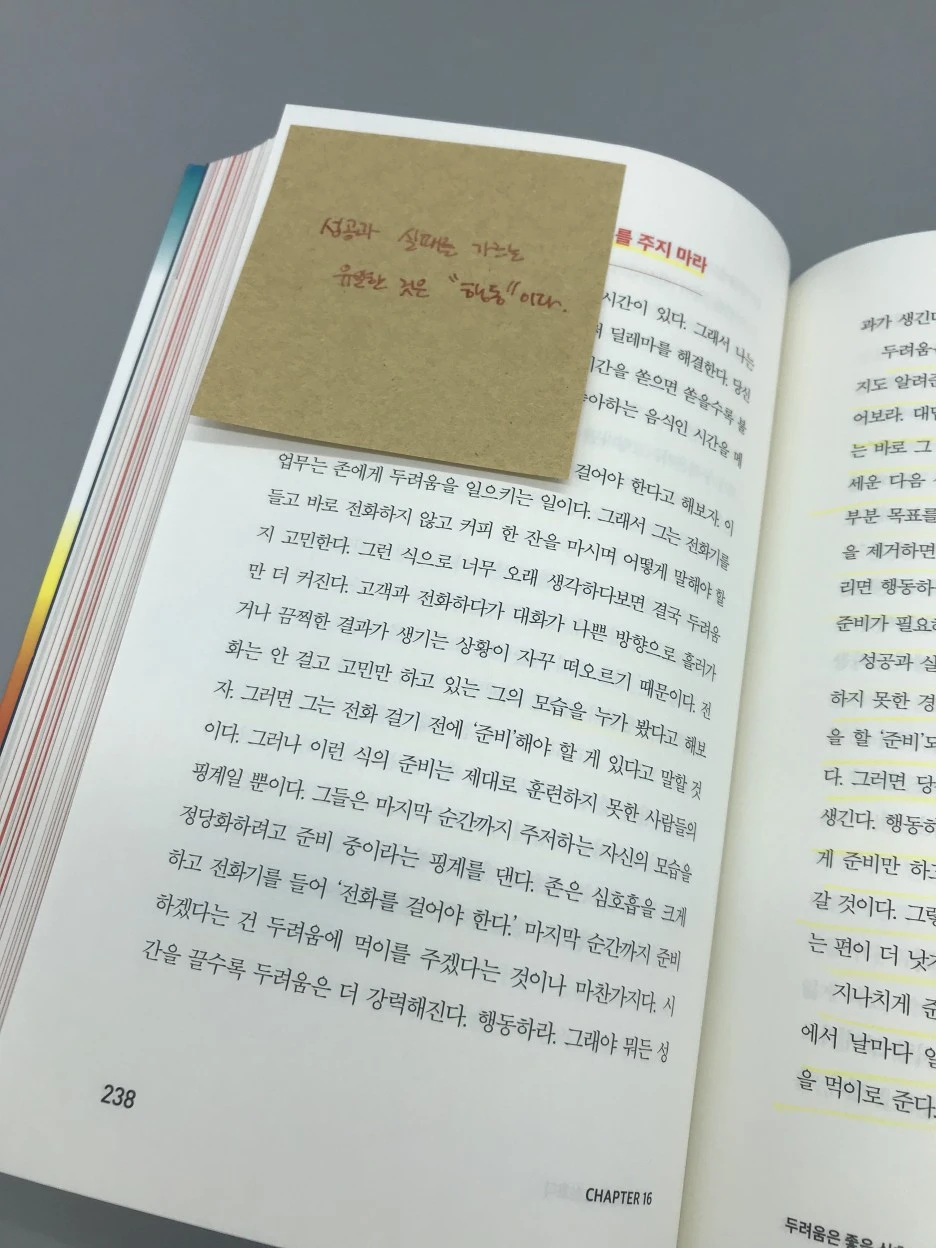 성공과 실패를 가르는
유일한 것은 "행동"이다.
를 주지 마라
시간이 있다. 그래서 나는
딜레마를 해결한다. 당신
시간을 쏟으면 쏟을수록 불
좋아하는 음식인 시간을 매
걸어야 한다고 해보자. 이
업무는 존에게 두려움을 일으키는 일이다. 그래서 그는 전화기를
들고 바로 전화하지 않고 커피 한 잔을 마시며 어떻게 말해야 할
지 고민한다. 그런 식으로 너무 오래 생각하다보면 결국 두려움
만 더 커진다. 고객과 전화하다가 대화가 나쁜 방향으로 흘러가
거나 끔찍한 결과가 생기는 상황이 자꾸 떠오르기 때문이다. 전
화는 안 걸고 고민만 하고 있는 그의 모습을 누가 봤다고 해보
자. 그러면 그는 전화 걸기 전에 ‘준비’해야 할 게 있다고 말할 것
이다. 그러나 이런 식의 준비는 제대로 훈련하지 못한 사람들의
핑계일 뿐이다. 그들은 마지막 순간까지 주저하는 자신의 모습을
정당화하려고 준비 중이라는 핑계를 댄다. 존은 심호흡을 크게
하고 전화기를 들어 ‘전화를 걸어야 한다.’ 마지막 순간까지 준비
하겠다는 건 두려움에 먹이를 주겠다는 것이나 마찬가지다. 시
간을 끌수록 두려움은 더 강력해진다. 행동하라. 그래야 뭐든 성
238
CHAPTER 16
과가 생긴
두려움
지도 알려준
어보라.
는 바로 그
세운 다음
부분 목표를
을 제거하면
리면 행동하
준비가 필요
성공과 실
하지 못한 경
을 할 ‘준비’도
다. 그러면 당
생긴다. 행동하
게 준비만 하고
갈 것이다. 그렇
는 편이 더 낫
지나치게 준
에서 날마다 일
을 먹이로 준다.
두려움은 좋은